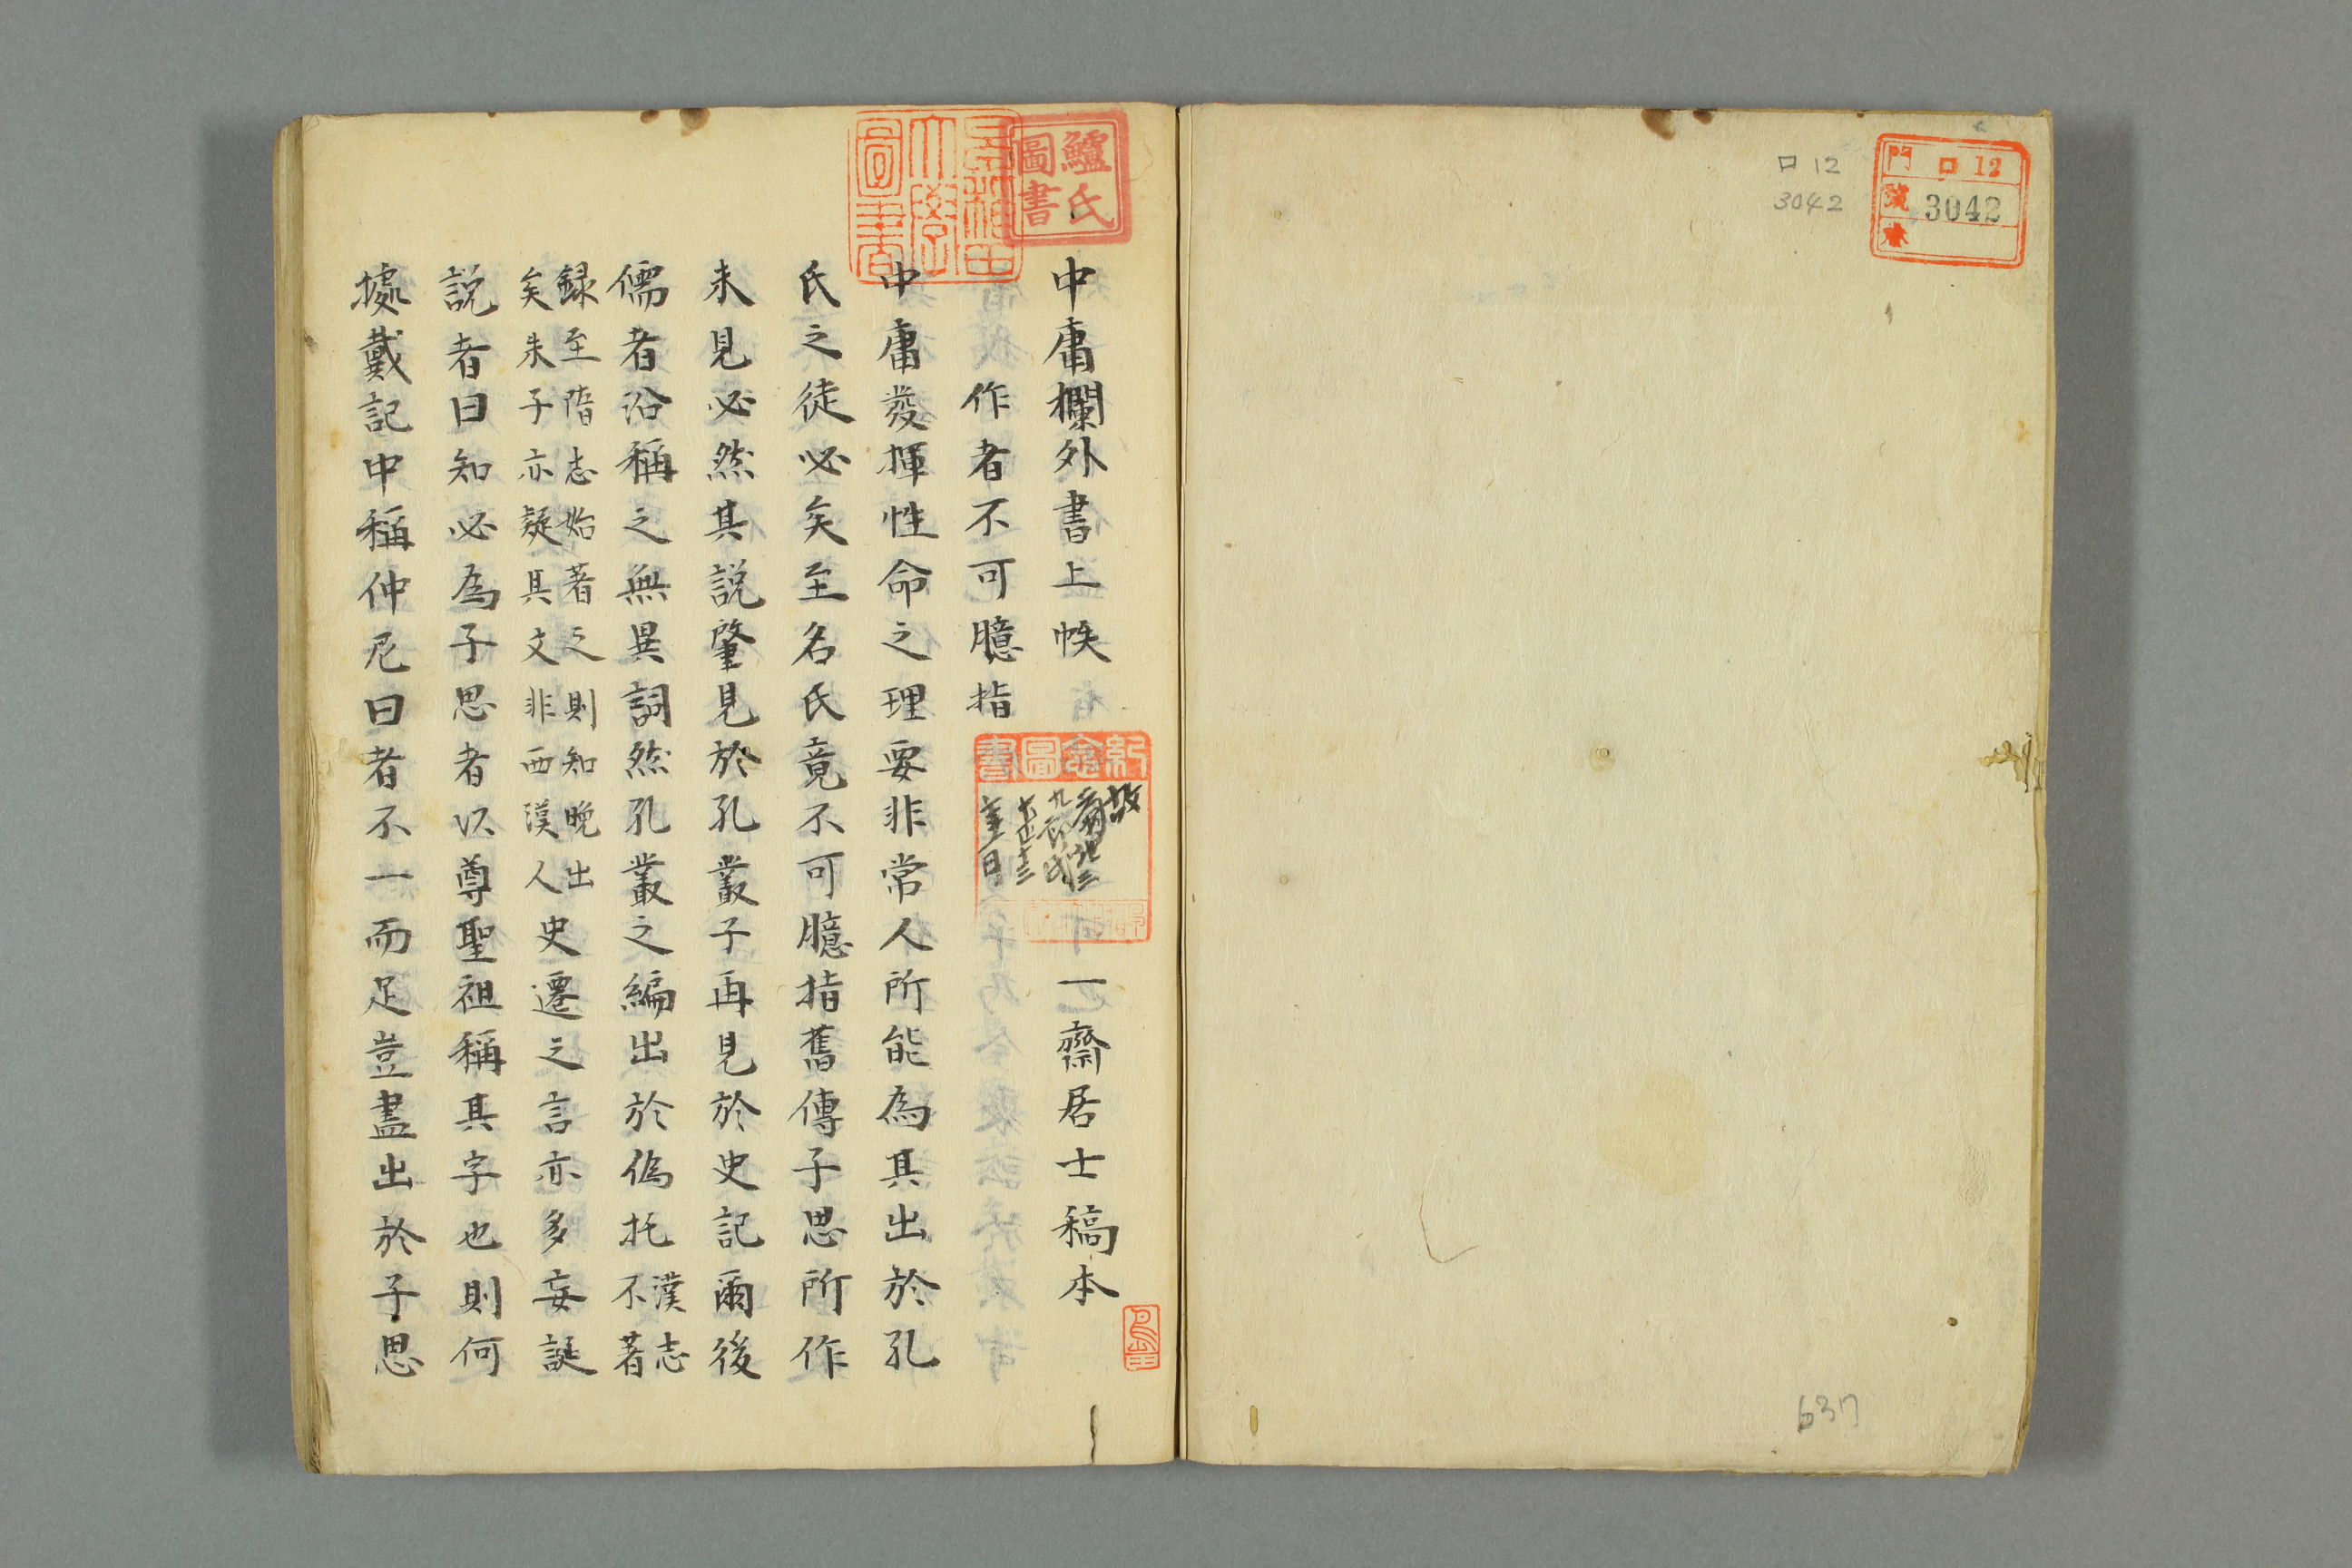 門 ロ 12
號 3042
巻
ロ 12
3042
637
鱸氏
圖書
早稲田
大學
圖書
中庸欄外書上帙 一齋居士稿本
作者不可臆指
紀念圖書
故
大正十三
中庸發揮性命之理要非常人所能為其出於孔
氏之徒必矣至名氏竟不可臆指舊傳子思所作
未見必然其説肇見於孔叢子再見於史記爾後
儒者沿稱之無異詞然孔叢之編出於偽托漢志
不著
録至隋志始著之則知晩出
矣朱子亦疑其文非西漢人史遷之言亦多妄誕
説者曰知必為子思者以尊聖祖稱其字也則何
據戴記中稱仲尼曰者不一而足豈盡出於子思